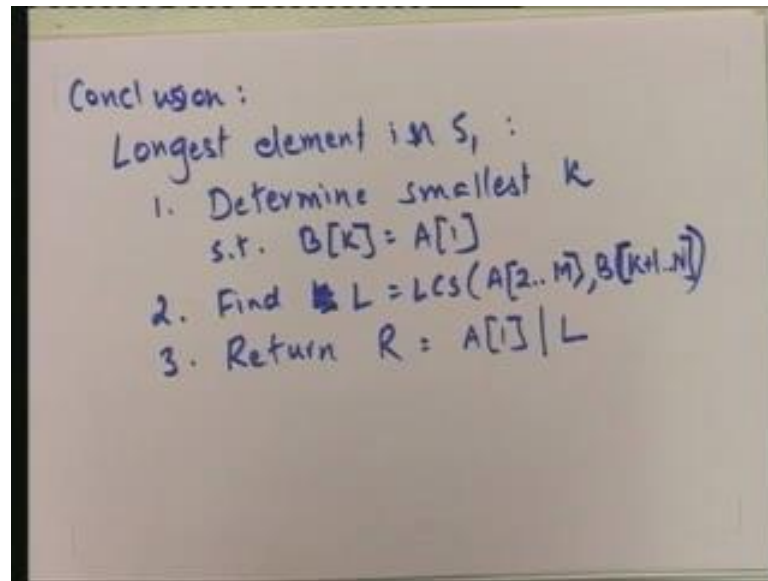 Conclusion:
Longest element in S₁ :
1. Determine smallest K
s.t. B[K] = A[1]
2. Find L = LCS(A[2..M], B[K+1..N])
3. Return R = A[1] | L